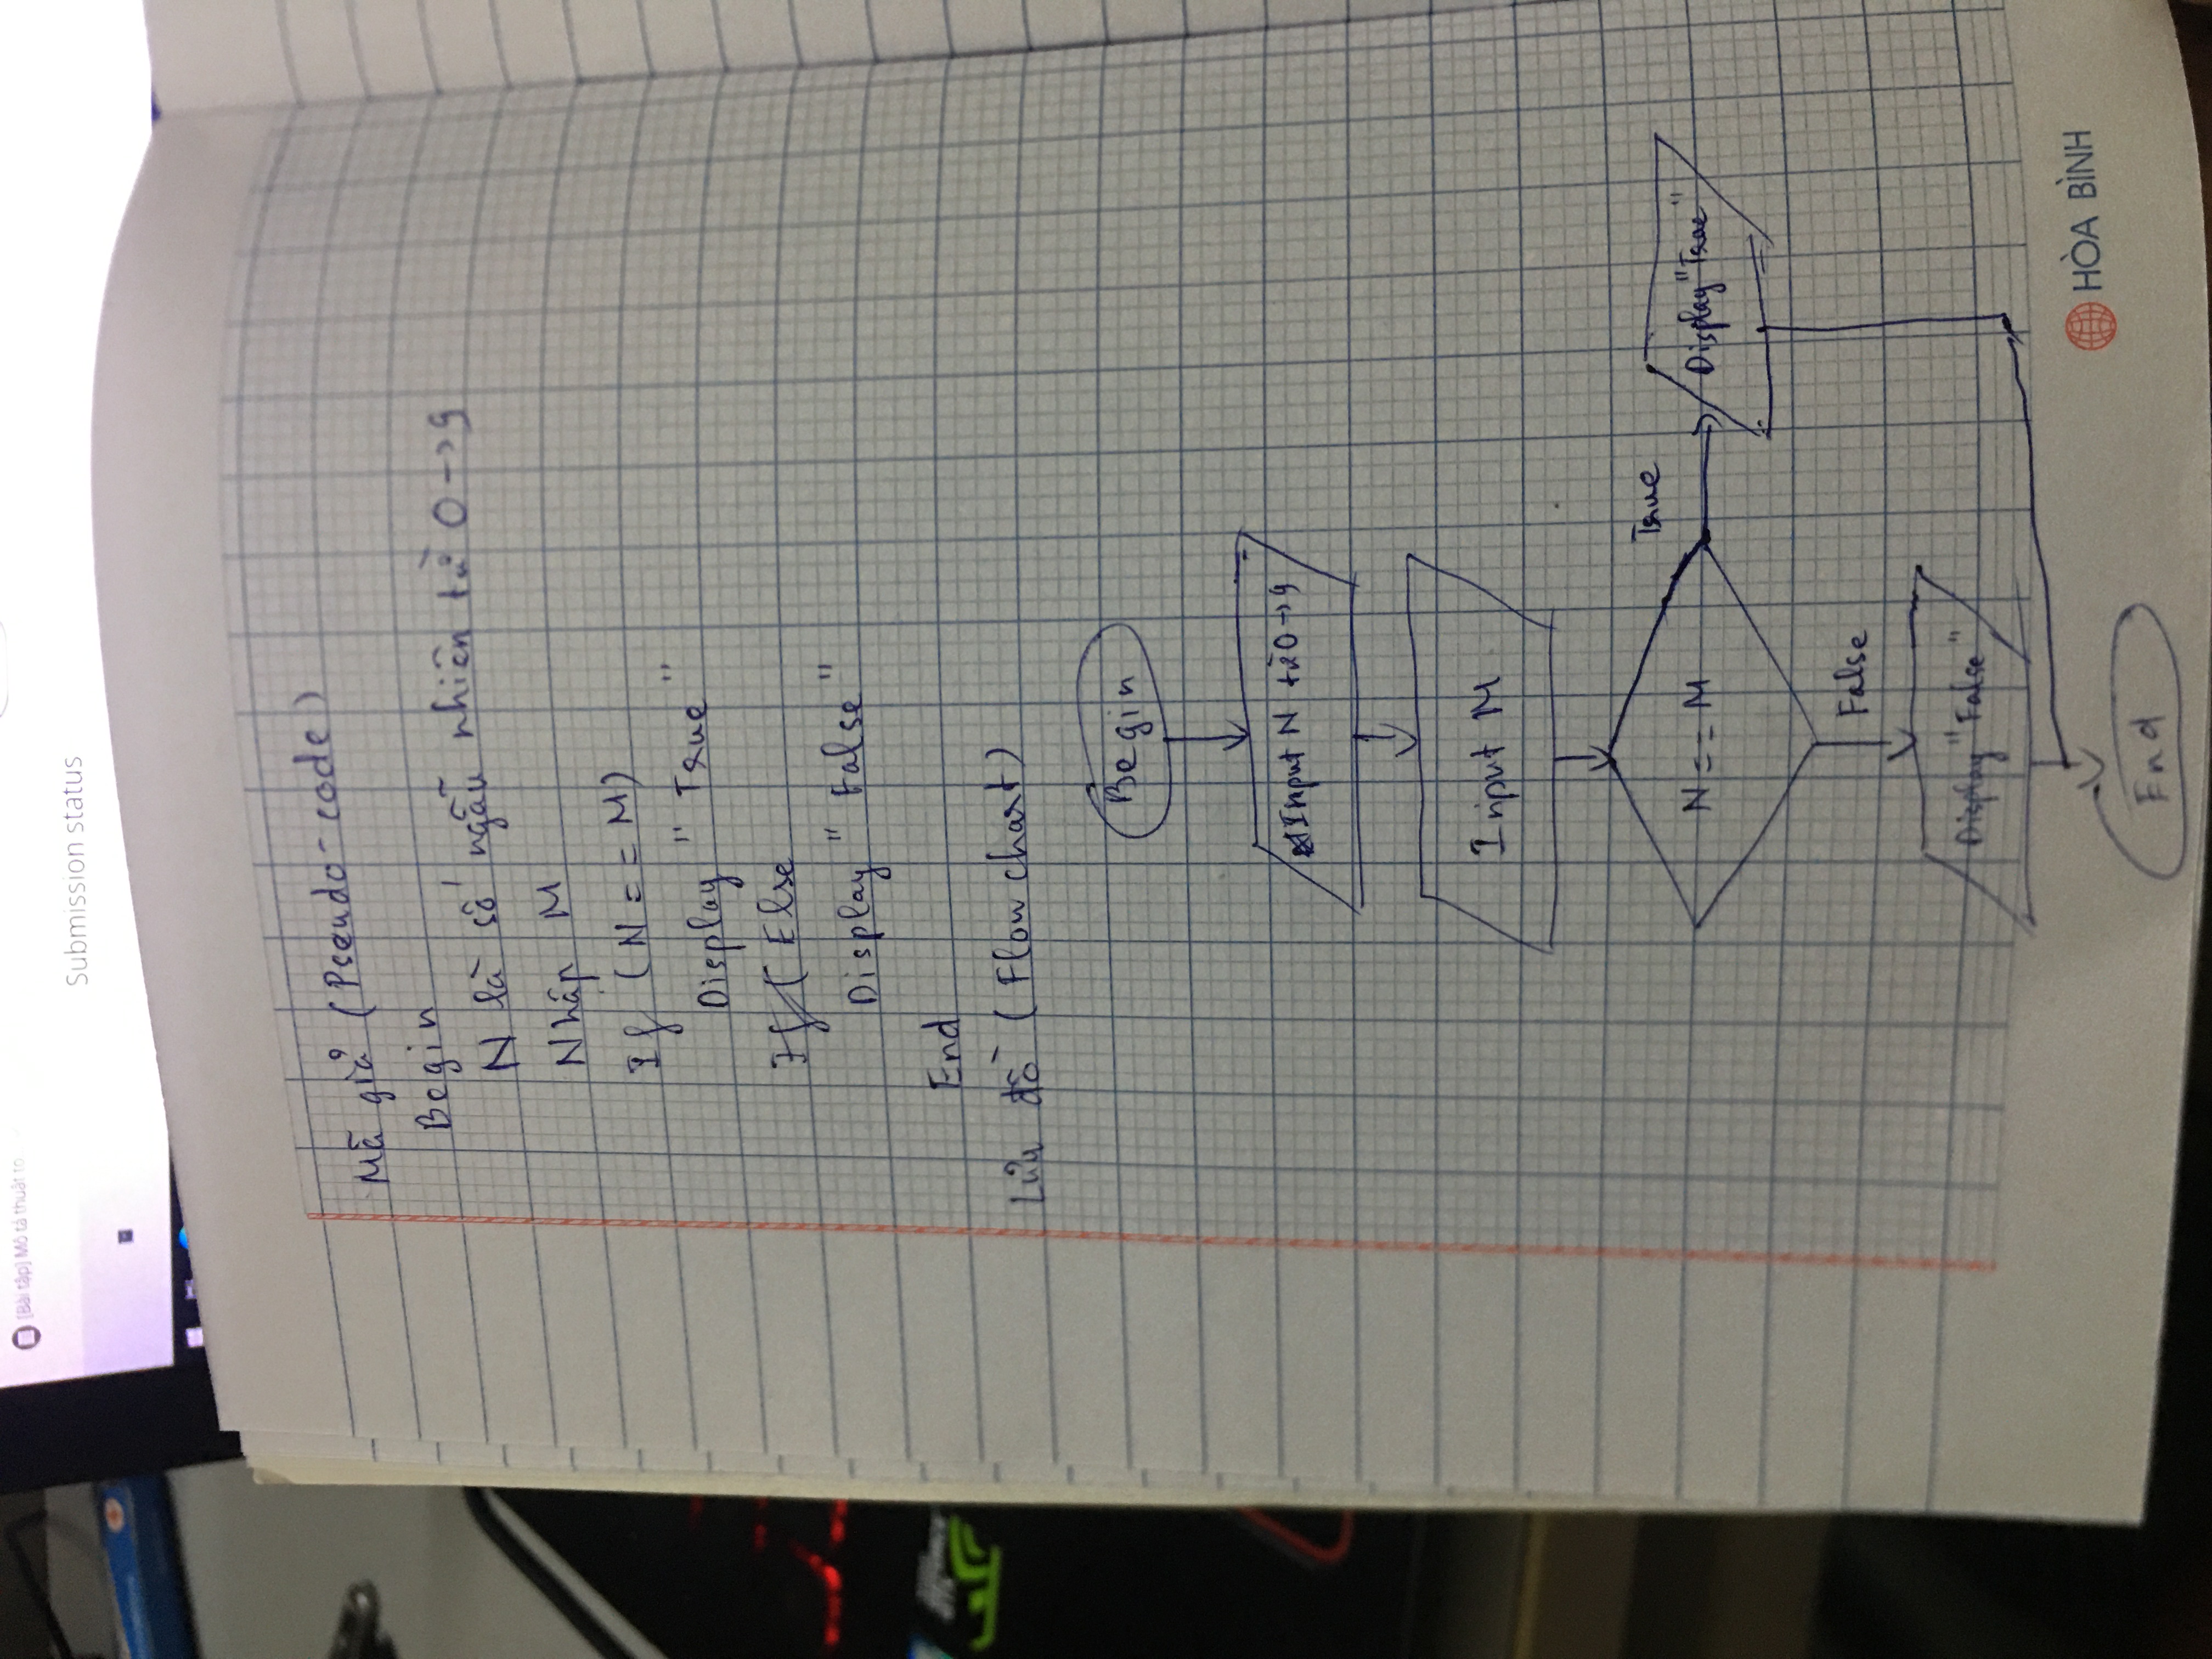 [Bài tập] Mô tả thuật to...
Submission status
Mã giả (Pseudo-code)
Begin
N là số ngẫu nhiên từ 0 → 9
Nhập M
If (N == M)
Display "True"
If ( Else
Display "False"
End
Lưu đồ (Flow chart)
Begin
Input N từ 0 → 9
Input M
N == M
True
Display "True"
False
Display "False"
End
HÒA BÌNH